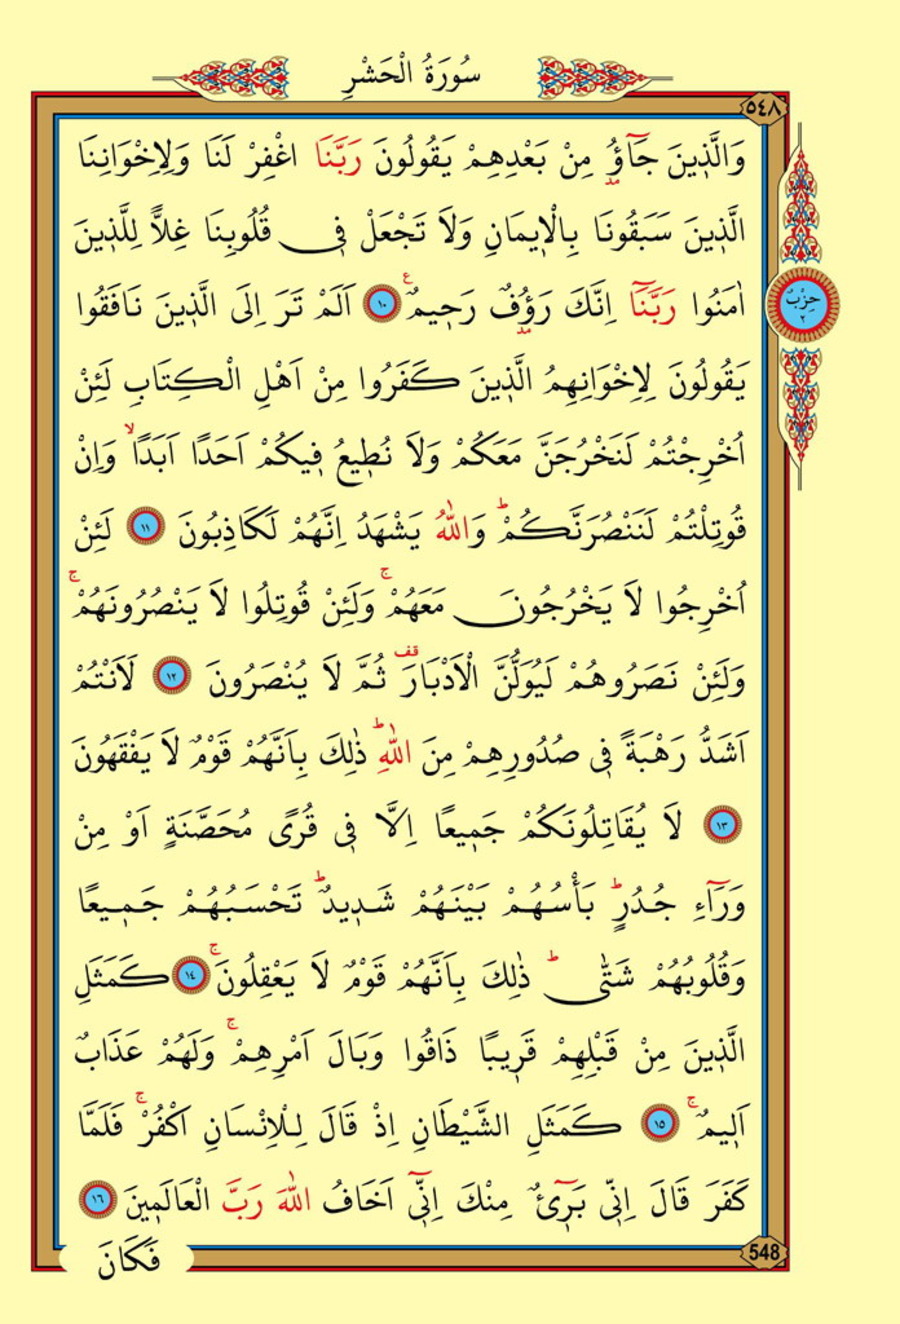 سُورَةُ الْحَشْرِ
٥٤٨
وَالَّذ۪ينَ جَٓاؤُ۫ مِنْ بَعْدِهِمْ يَقُولُونَ رَبَّنَا اغْفِرْ لَنَا وَلِاِخْوَانِنَا
الَّذ۪ينَ سَبَقُونَا بِالْا۪يمَانِ وَلَا تَجْعَلْ ف۪ي قُلُوبِنَا غِلًّا لِلَّذ۪ينَ
اٰمَنُوا رَبَّنَٓا اِنَّكَ رَؤُ۫فٌ رَح۪يمٌ۟ ﴿١٠﴾ اَلَمْ تَرَ اِلَى الَّذ۪ينَ نَافَقُوا
حِزْبٌ
٢
يَقُولُونَ لِاِخْوَانِهِمُ الَّذ۪ينَ كَفَرُوا مِنْ اَهْلِ الْكِتَابِ لَئِنْ
اُخْرِجْتُمْ لَنَخْرُجَنَّ مَعَكُمْ وَلَا نُط۪يعُ ف۪يكُمْ اَحَدًا اَبَدًاۙ وَاِنْ
قُوتِلْتُمْ لَنَنْصُرَنَّكُمْۜ وَاللّٰهُ يَشْهَدُ اِنَّهُمْ لَكَاذِبُونَ ﴿١١﴾ لَئِنْ
اُخْرِجُوا لَا يَخْرُجُونَ مَعَهُمْۚ وَلَئِنْ قُوتِلُوا لَا يَنْصُرُونَهُمْۚ
وَلَئِنْ نَصَرُوهُمْ لَيُوَلُّنَّ الْاَدْبَارَ۠ ثُمَّ لَا يُنْصَرُونَ ﴿١٢﴾ لَاَنْتُمْ
اَشَدُّ رَهْبَةً ف۪ي صُدُورِهِمْ مِنَ اللّٰهِۜ ذٰلِكَ بِاَنَّهُمْ قَوْمٌ لَا يَفْقَهُونَ
﴿١٣﴾ لَا يُقَاتِلُونَكُمْ جَم۪يعًا اِلَّا ف۪ي قُرًى مُحَصَّنَةٍ اَوْ مِنْ
وَرَٓاءِ جُدُرٍۜ بَأْسُهُمْ بَيْنَهُمْ شَد۪يدٌۜ تَحْسَبُهُمْ جَم۪يعًا
وَقُلُوبُهُمْ شَتّٰىۜ ذٰلِكَ بِاَنَّهُمْ قَوْمٌ لَا يَعْقِلُونَۚ ﴿١٤﴾ كَمَثَلِ
الَّذ۪ينَ مِنْ قَبْلِهِمْ قَر۪يبًا ذَاقُوا وَبَالَ اَمْرِهِمْۚ وَلَهُمْ عَذَابٌ
اَل۪يمٌۚ ﴿١٥﴾ كَمَثَلِ الشَّيْطَانِ اِذْ قَالَ لِلْاِنْسَانِ اكْفُرْۚ فَلَمَّا
كَفَرَ قَالَ اِنّ۪ي بَر۪ٓيءٌ مِنْكَ اِنّ۪ٓي اَخَافُ اللّٰهَ رَبَّ الْعَالَم۪ينَ ﴿١٦﴾
548
فَكَانَ